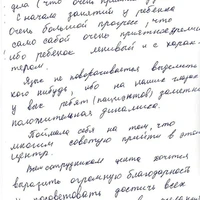 дела (что очень прият
С начала занятий у ребенка
очень большой прогресс, что
само собой очень приятно
ибо ребенок ленивый и с харак-
тером.
Язык не поворачивается выделить
кого нибудь, ибо на наших глазах
у всех ребят (пациентов) заметна
положительная динамика.
Поймала себя на том, что
многим советую прийти в этот
центр.
Всем сотрудникам центра хочется
выразить огромную благодарность
достичь всех